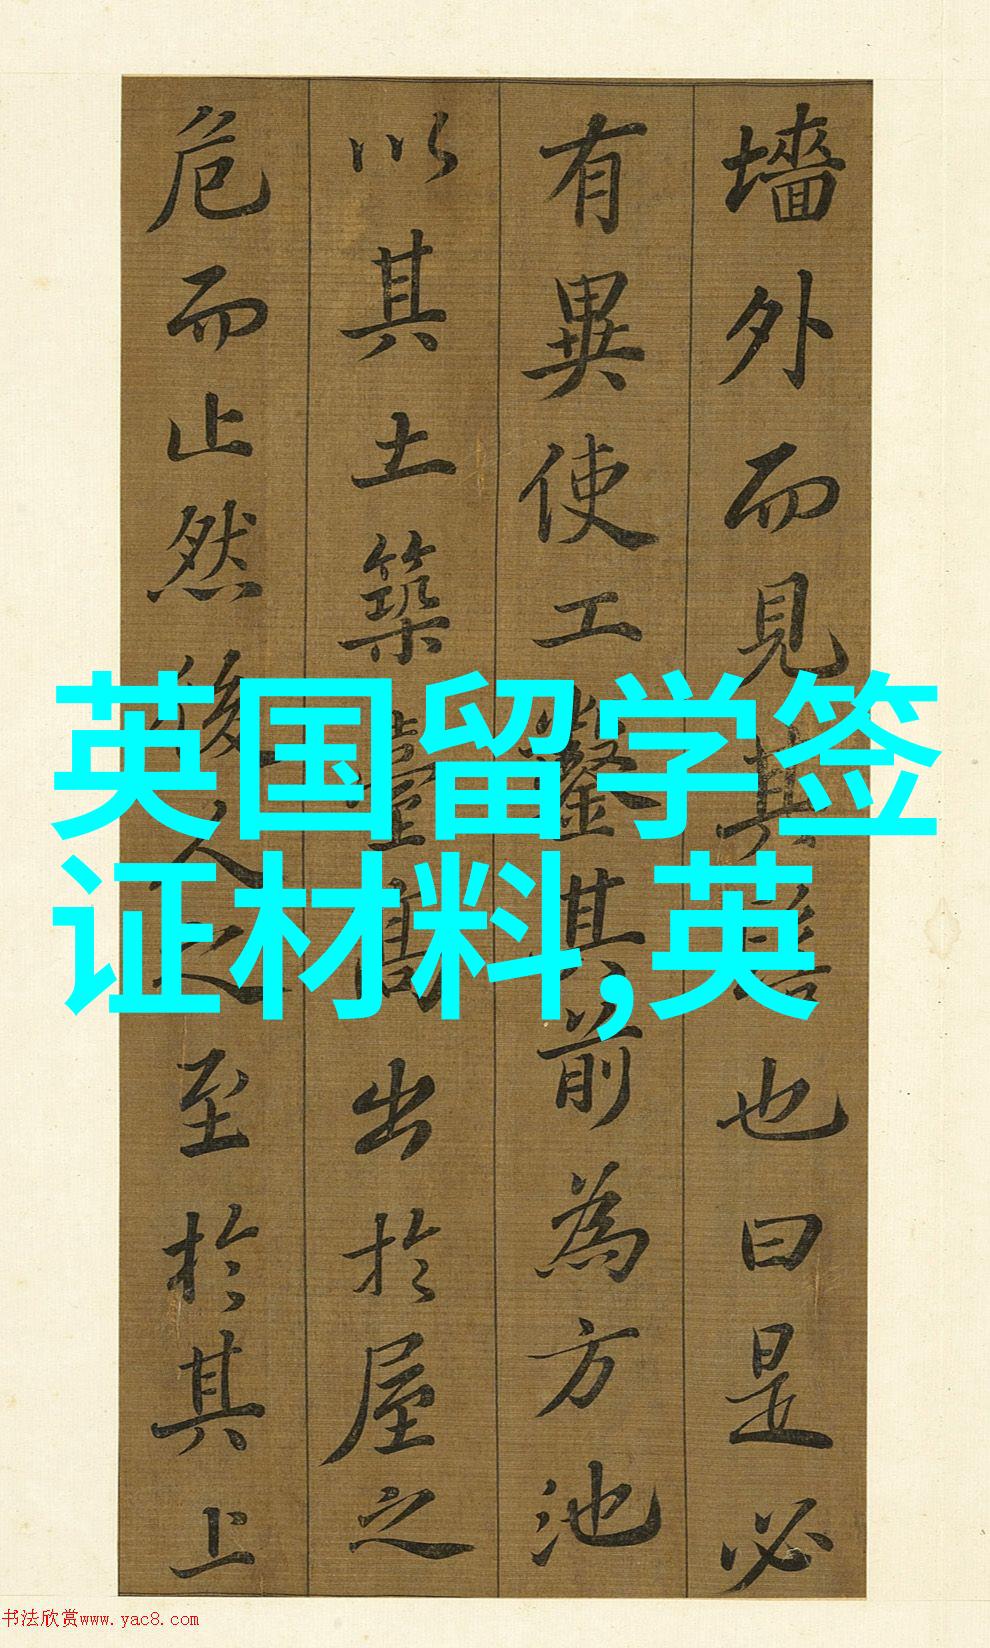 墻外而見其髻也曰是必
有異使工鑿其前為方池
以其土築臺高出於屋之
危而止然後人之至於其上
英国留学签
证材料,英
书法欣赏www.yac8.com